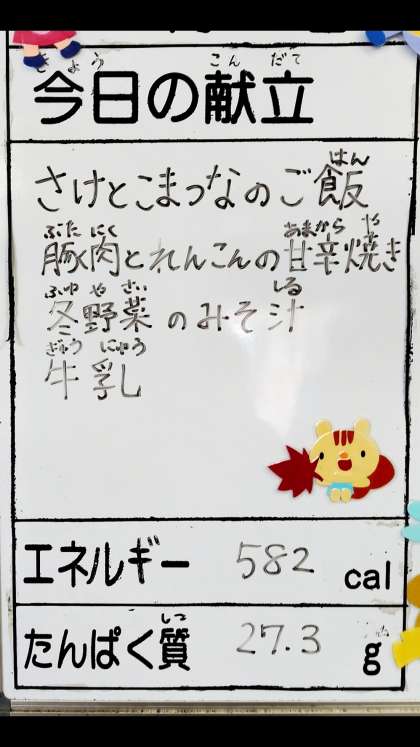 きょう こんだて
今日の献立
はん
さけとこまつなのご飯
ぶた にく あまから や
豚肉とれんこんの甘辛焼き
ふゆ や さい しる
冬野菜のみそ汁
ぎゅう にゅう
牛乳
エネルギー 582 cal
しつ
たんぱく質 27.3 g